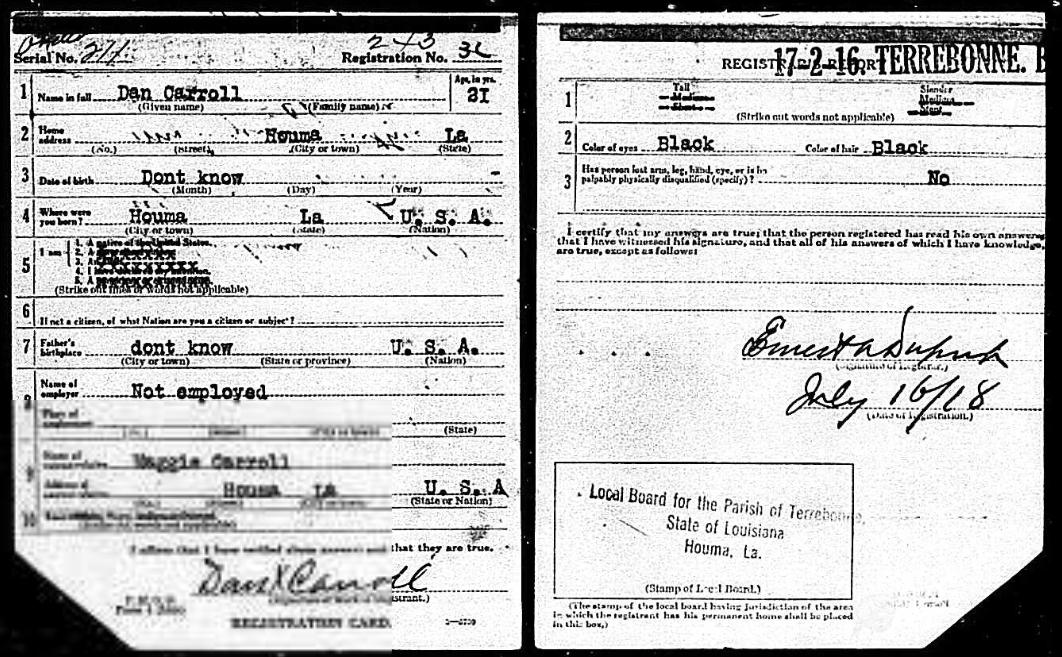 Serial No. 211 Registration No. 36
1 Name in full Dan Carroll Age, in yrs. 21
(Given name) (Family name)
2 Home address Houma La
(No.) (Street) (City or town) (State)
3 Date of birth Dont know
(Month) (Day) (Year)
4 Where were you born? Houma La U. S. A.
(City or town) (State) (Nation)
5 I am
1. A native of the United States.
2. A
3. An
4. I
5. A
(Strike out lines or words not applicable)
6 If not a citizen, of what Nation are you a citizen or subject?
7 Father's birthplace dont know U. S. A.
(City or town) (State or province) (Nation)
8 Name of employer Not employed
Place of employment
(State)
9 Name of Maggie Carroll
Address of Houma La U. S. A
(State or Nation)
10
I affirm that I have verified above answers and that they are true.
Dan X Carroll
REGISTRATION CARD.
REGISTRAR'S REPORT 17-2-16. TERREBONNE.
1 Tall Medium Short Slender Medium Stout
(Strike out words not applicable)
2 Color of eyes Black Color of hair Black
3 Has person lost arm, leg, hand, eye, or is he palpably physically disqualified (specify)? No
I certify that my answers are true; that the person registered has read his own answers,
that I have witnessed his signature, and that all of his answers of which I have knowledge,
are true, except as follows:
(Signature of Registrar.)
July 16/18
(Date of Registration.)
Local Board for the Parish of Terrebonne,
State of Louisiana
Houma, La.
(Stamp of Local Board.)
(The stamp of the local board having jurisdiction of the area
in which the registrant has his permanent home shall be placed
in this box.)